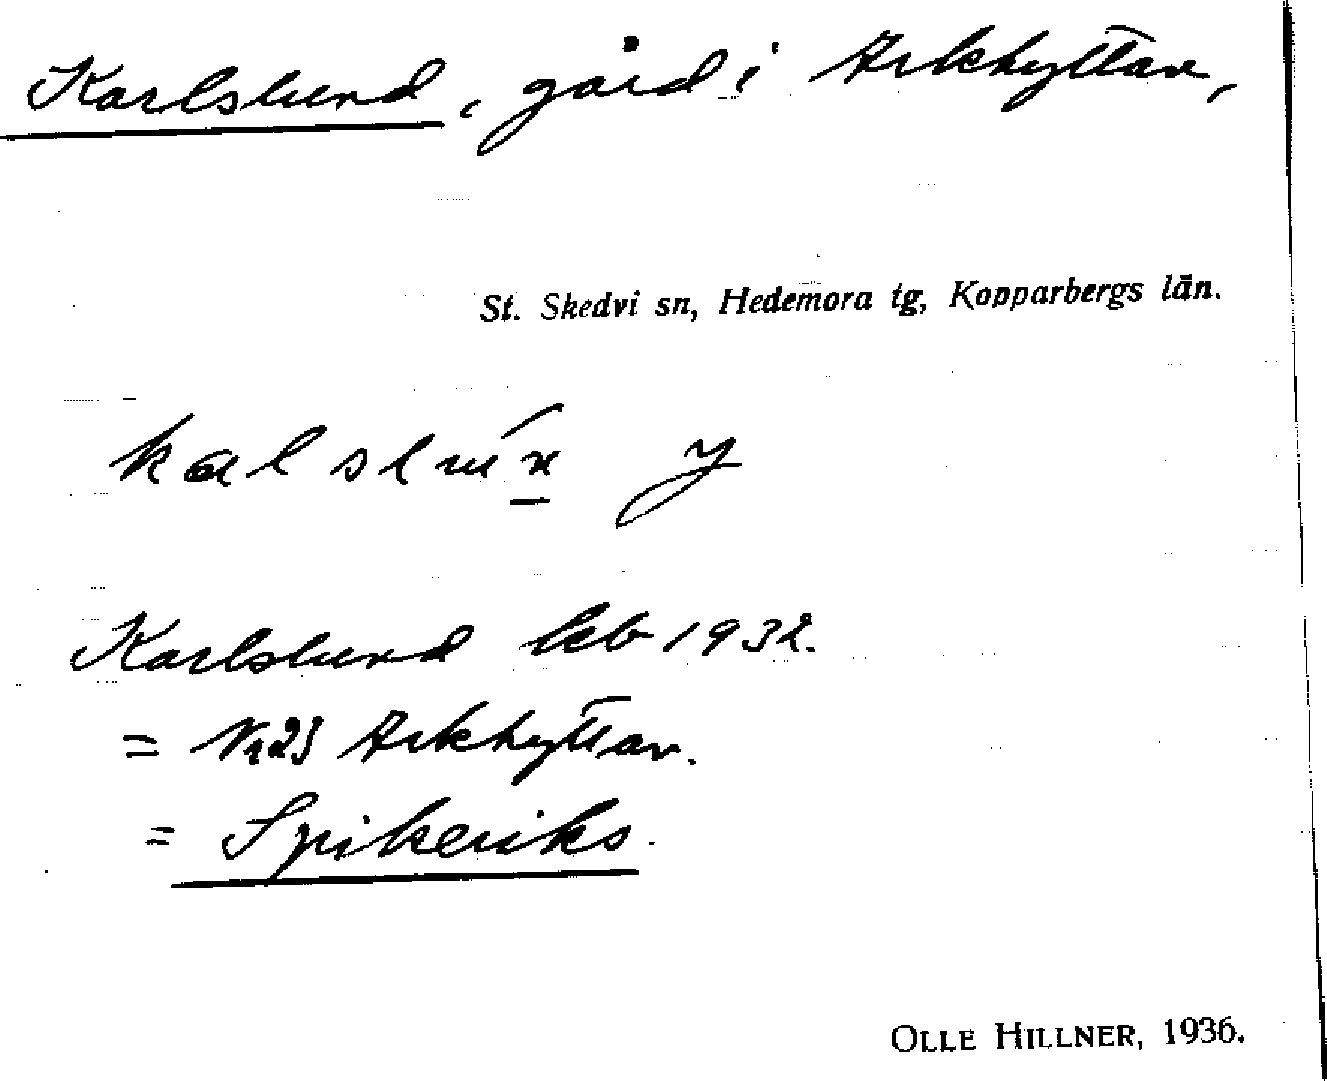 Karlslund, gård i Arkhyttan,
St. Skedvi sn, Hedemora tg, Kopparbergs län.
Karlslund kb 1932.
= N:23 Arkhyttan.
= Spikeriks.
OLLE HILLNER, 1936.